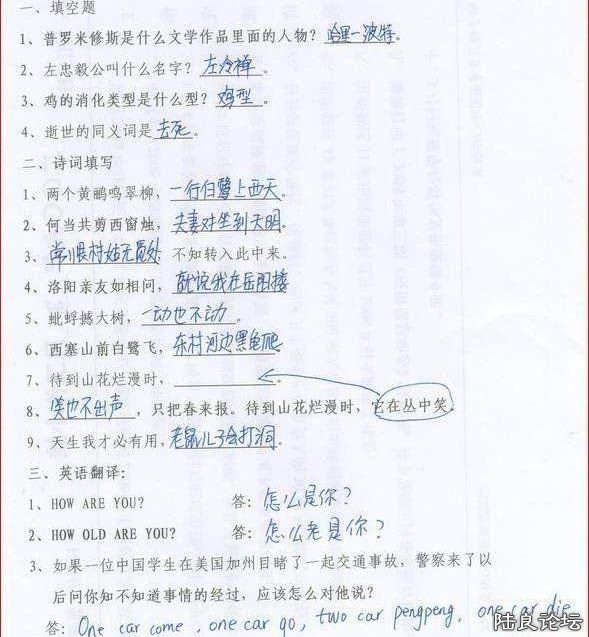 一、填空题
1、普罗米修斯是什么文学作品里面的人物？哈里一波特。
2、左忠毅公叫什么名字？左冷禅。
3、鸡的消化类型是什么型？鸡型。
4、逝世的同义词是去死。
二、诗词填写
1、两个黄鹂鸣翠柳，一行白鹭上西天。
2、何当共剪西窗烛，夫妻对坐到天明。
3、常恨村姑无觅处，不知转入此中来。
4、洛阳亲友如相问，就说我在岳阳楼
5、蚍蜉撼大树，一动也不动。
6、西塞山前白鹭飞，东村河边黑龟爬
7、待到山花烂漫时，____________。
8、笑也不出声，只把春来报。待到山花烂漫时，它在丛中笑。
9、天生我才必有用，老鼠儿子会打洞。
三、英语翻译：
1、HOW ARE YOU? 答：怎么是你？
2、HOW OLD ARE YOU? 答：怎么老是你？
3、如果一位中国学生在美国加州目睹了一起交通事故，警察来了以
后问你知不知道事情的经过，应该怎么对他说？
答：One car come, one car go, two car pengpeng, one car die
陆良论坛